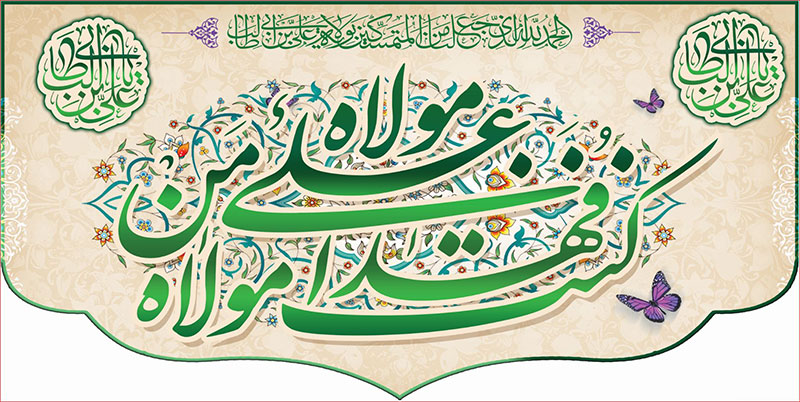 الحمد لله الذی جعلنا من المتمسکین بولایة علی بن ابی طالب
یا علی بن ابی طالب
یا علی بن ابی طالب
من کنت مولاه فهذا علی مولاه